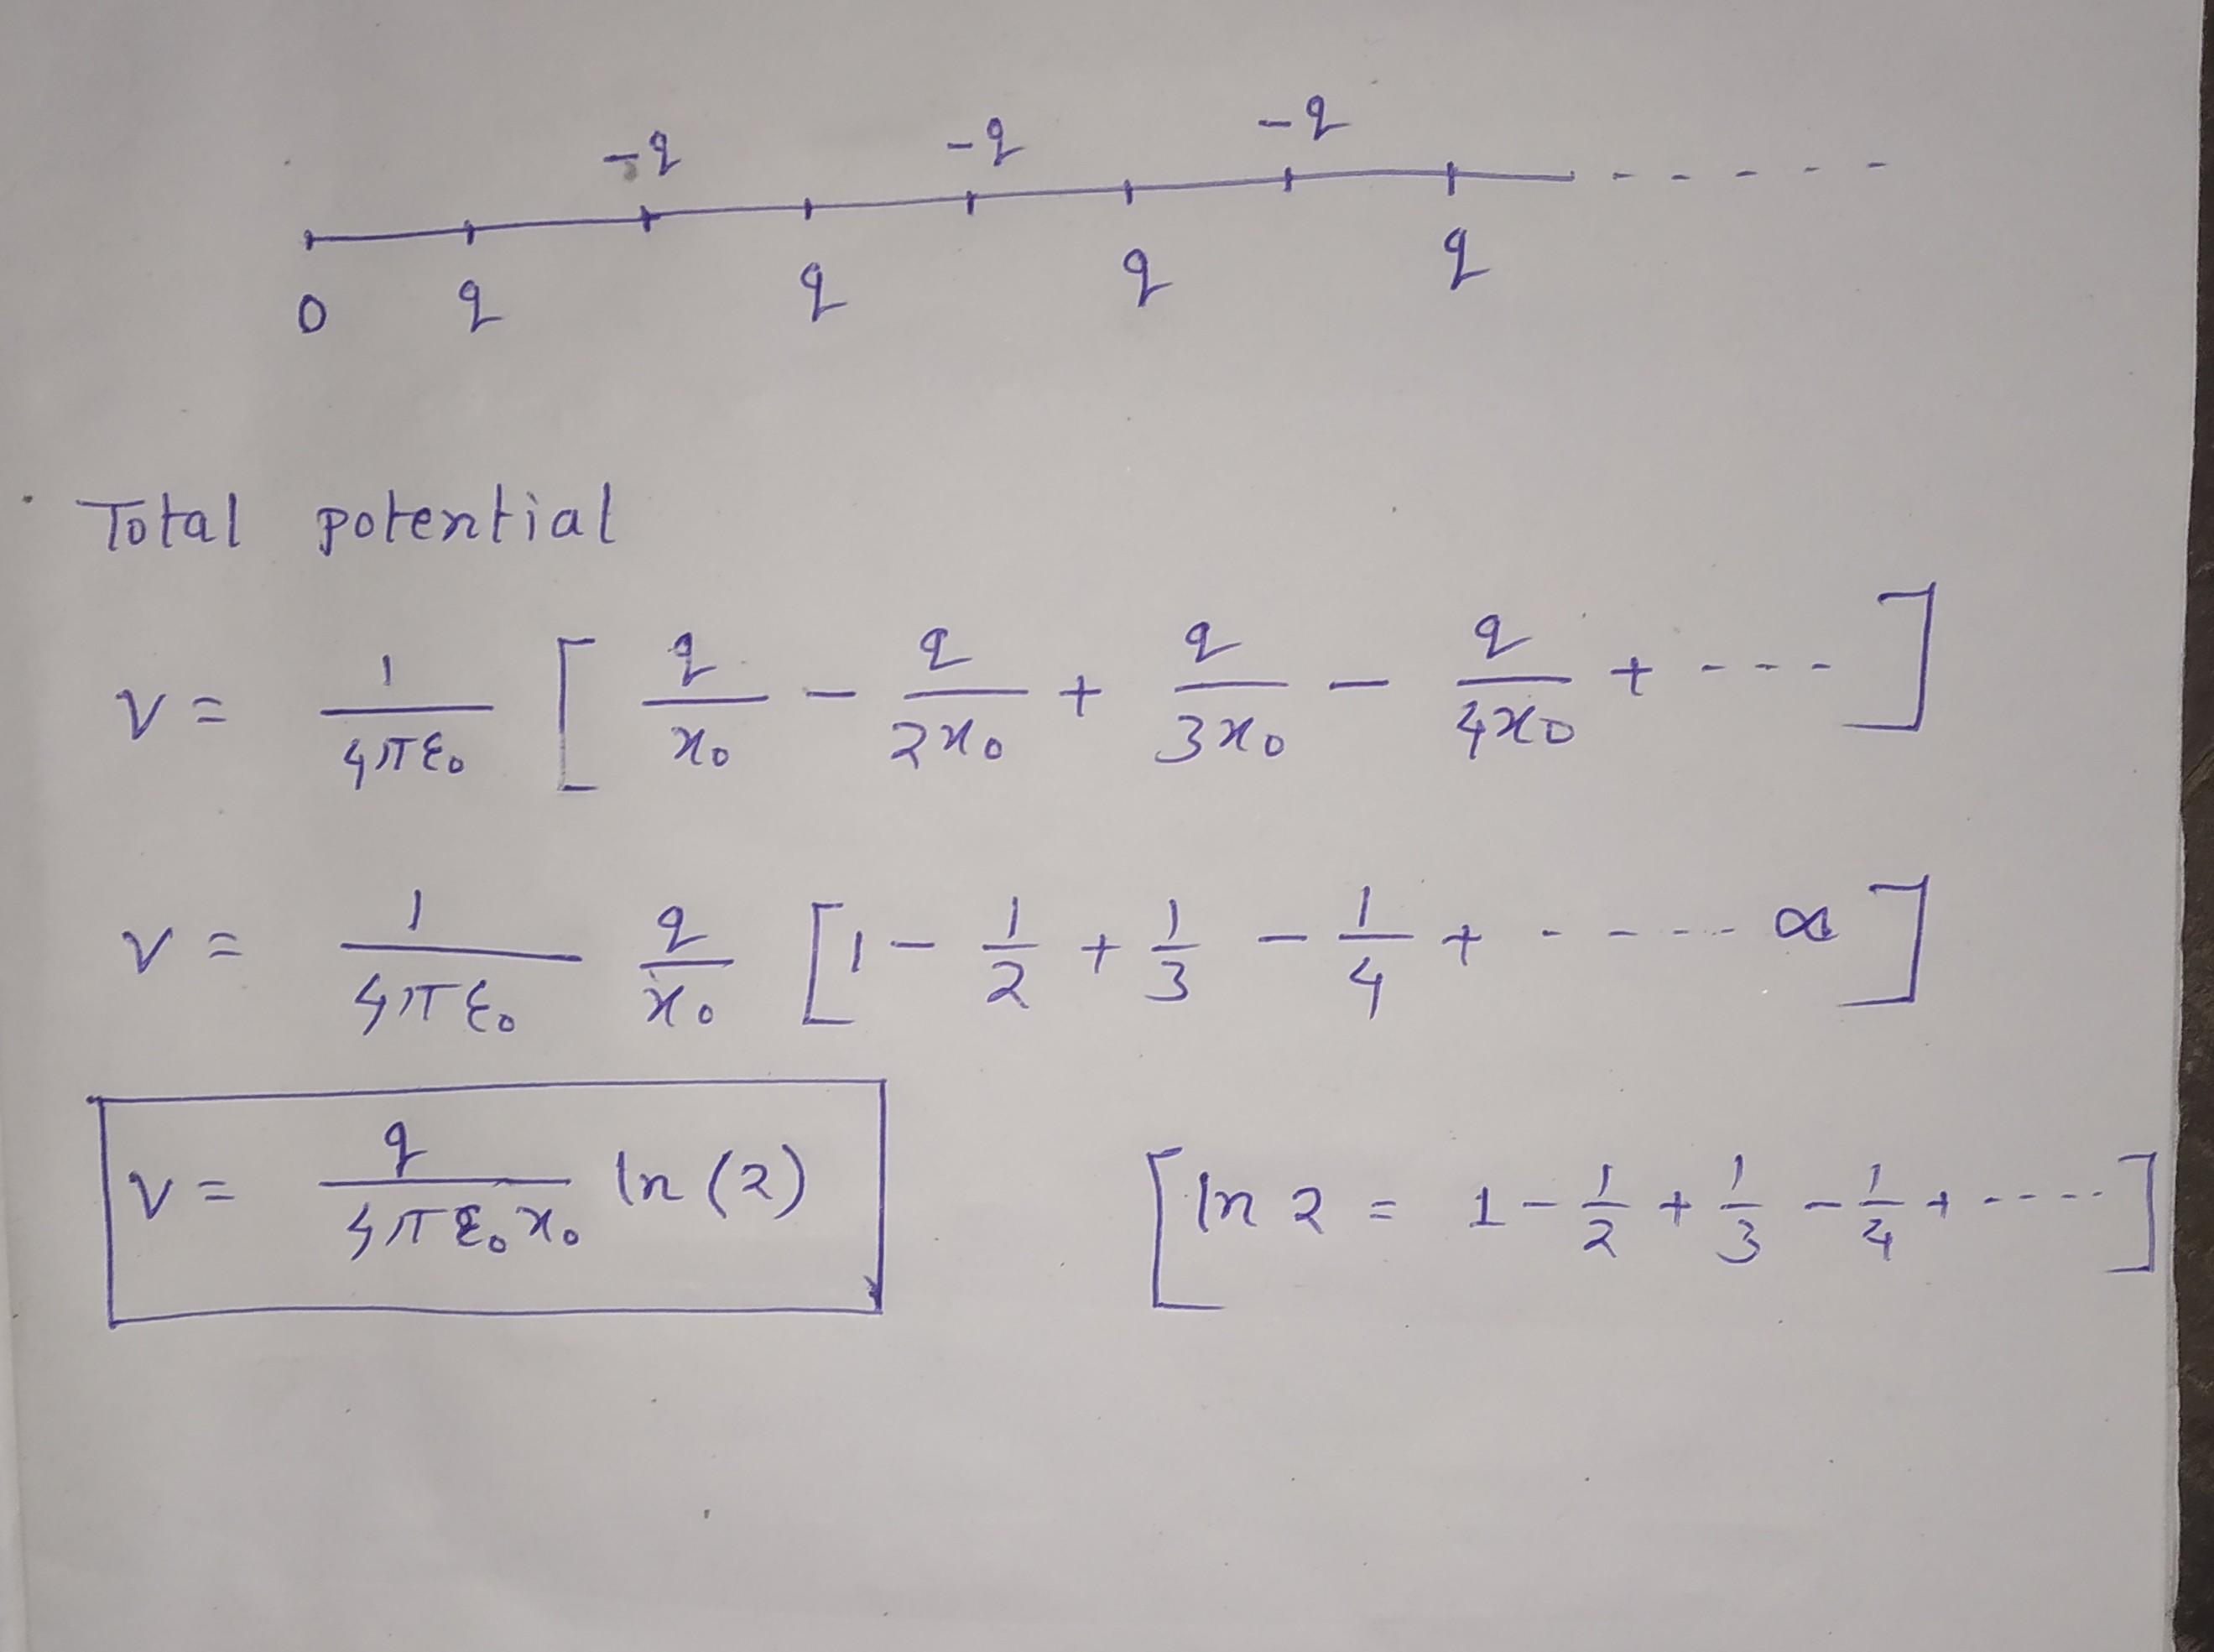 -q -q -q
0 q q q q
Total potential
V = 1/4πε₀ [ q/x₀ - q/2x₀ + q/3x₀ - q/4x₀ + ---- ]
V = 1/4πε₀ q/x₀ [ 1 - 1/2 + 1/3 - 1/4 + - - - - - ∞ ]
V = q/4πε₀x₀ ln (2) [ ln 2 = 1 - 1/2 + 1/3 - 1/4 + ----- ]